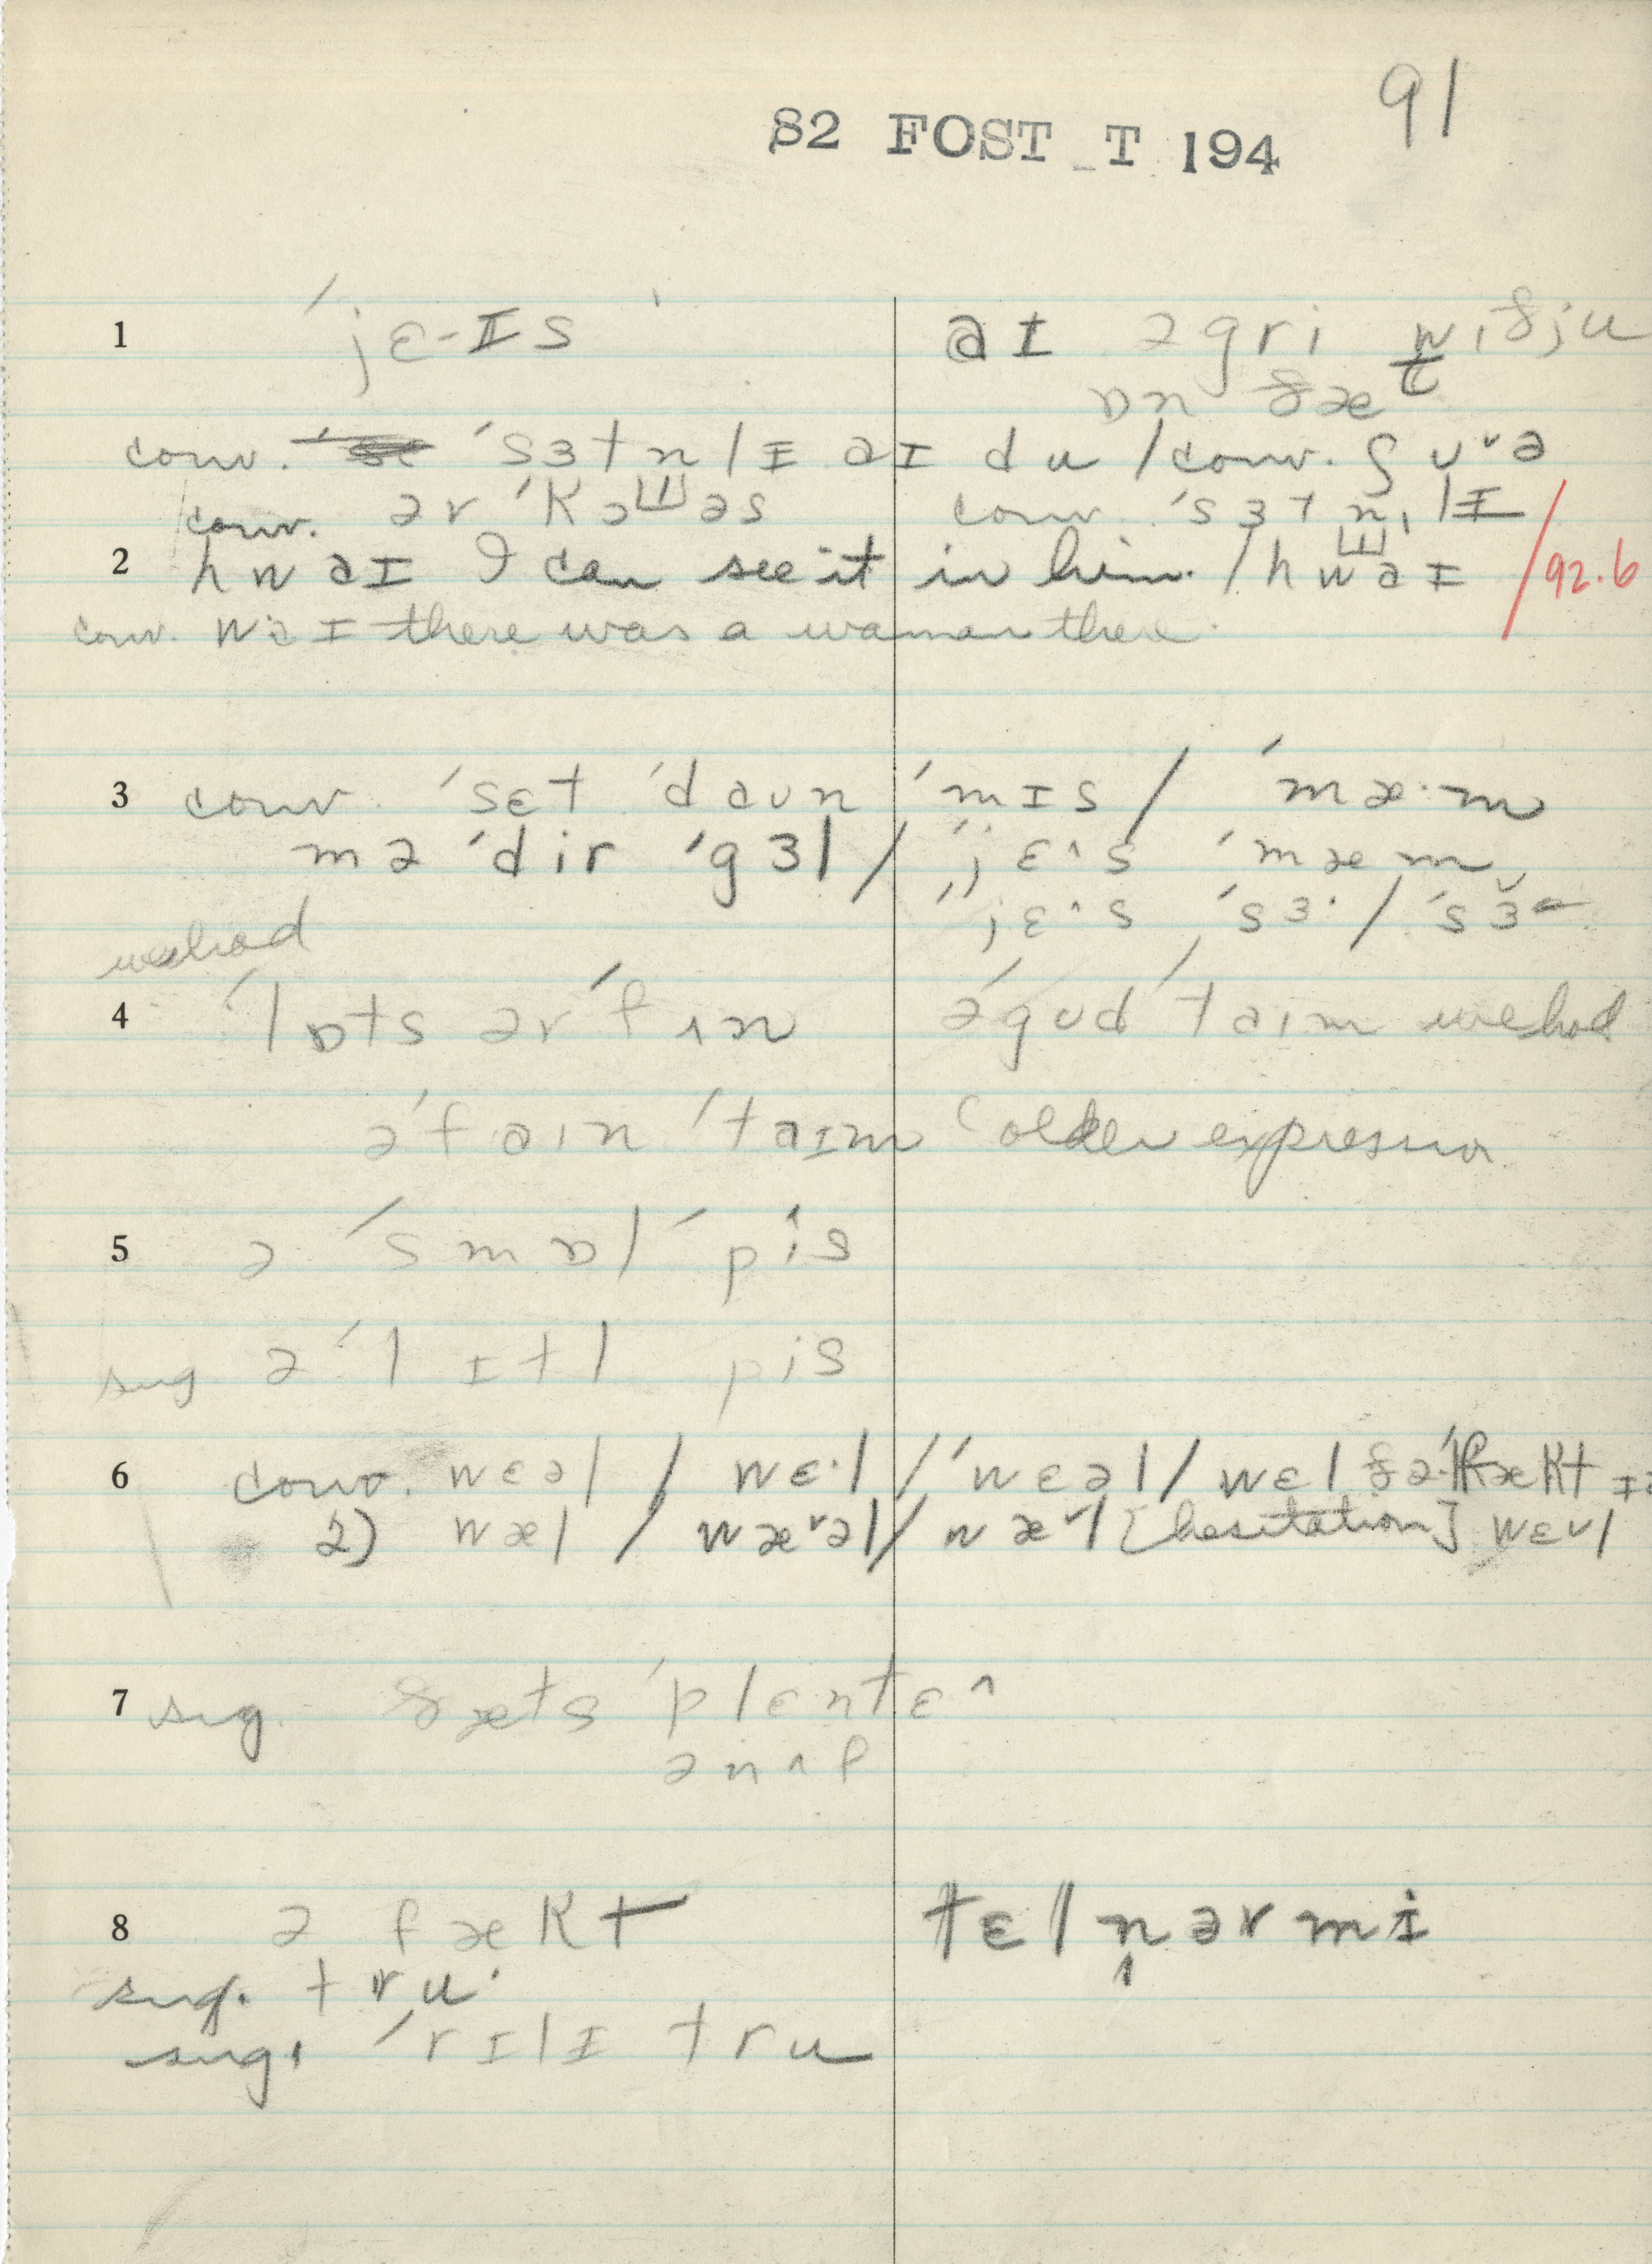 82 FOST T 194 91
1 ˈjɛ-ɪs ˈ aɪ əgri wɪðju
ɒn ðæt
conv. ˈsɜtnlɪ aɪ du / conv. ʃʊ˅ə
conv. ər ˈkəɯəs conv. ˈsɜtn̩lɪ
2 hwaɪ I can see it in him. / hwaɪ / 92.6
conv. waɪ there was a woman there.
3 conv. ˈsɛt ˈdaʊn ˈmɪs / ˈmæ·m
mə ˈdir ˈgɜl / ˈˈjɛ^s ˈmæm
ˈˈjɛ^s ˈsɜ· / ˈsɜ
wehad
4 ˈlɒts ər ˈfʌn ə ˈgʊd ˈtaɪm wehad
ə ˈfaɪn ˈtaɪm (older expression
5 ə ˈsmɒl ˈpis
sug ə ˈlɪtl pis
6 conv. wɛəl / wɛ·l / ˈˈwɛəl / wɛl ðə ˈfækt ɪz
2) wæl / wæ˅əl / wæ˅l [hesitation] wɛ˅l
7 sug. ðæts ˈplɛntɛ^
ənʌf
8 ə fækt tɛlnərmi
sug. tru·
sug. ˈrɪlɪ tru